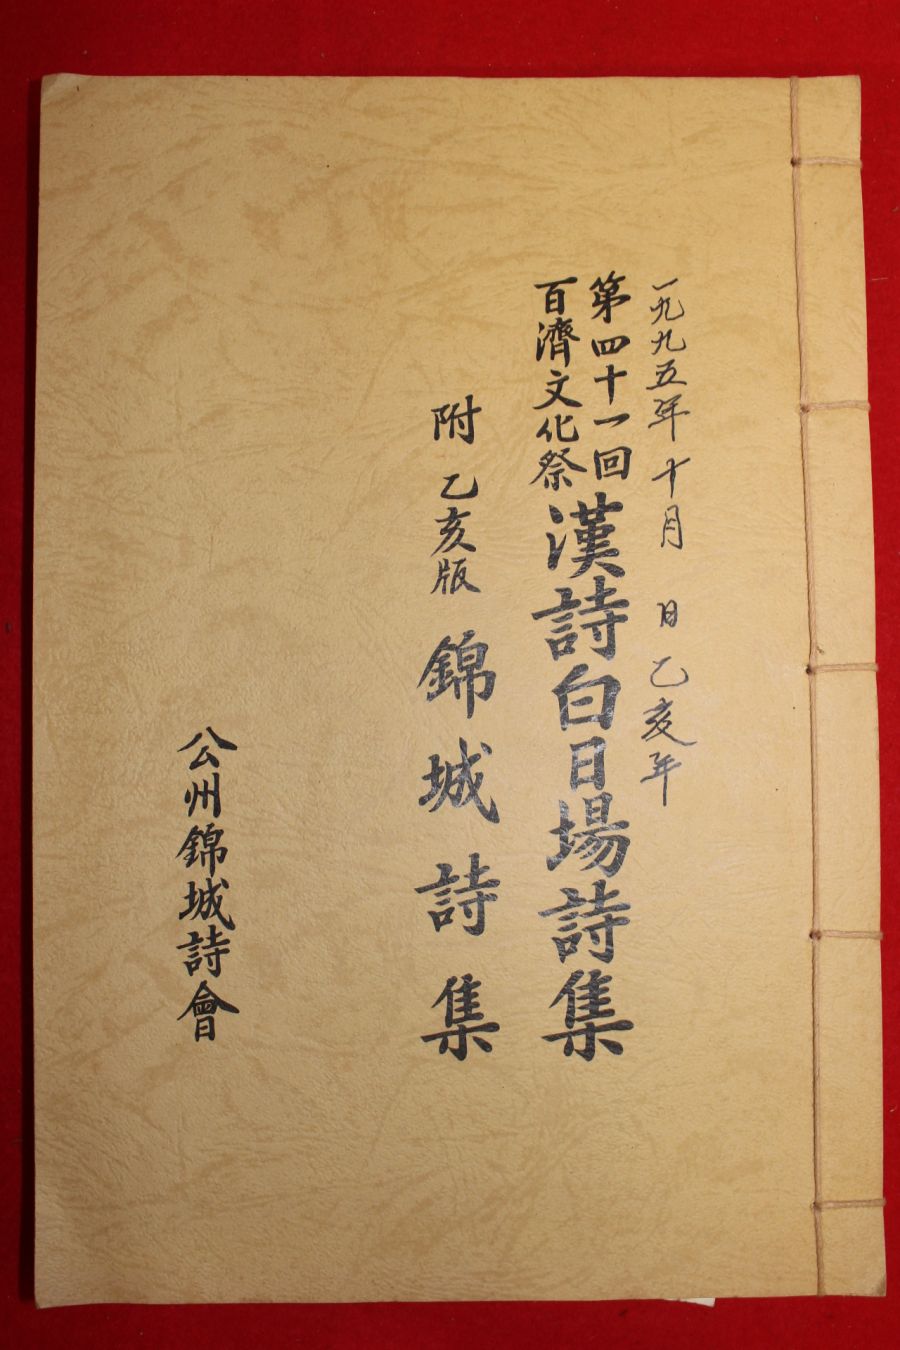 一九九五年 十月 日 乙亥年
第四十一回
百濟文化祭
漢詩白日場詩集
附 乙亥版 錦城詩集
公州錦城詩會